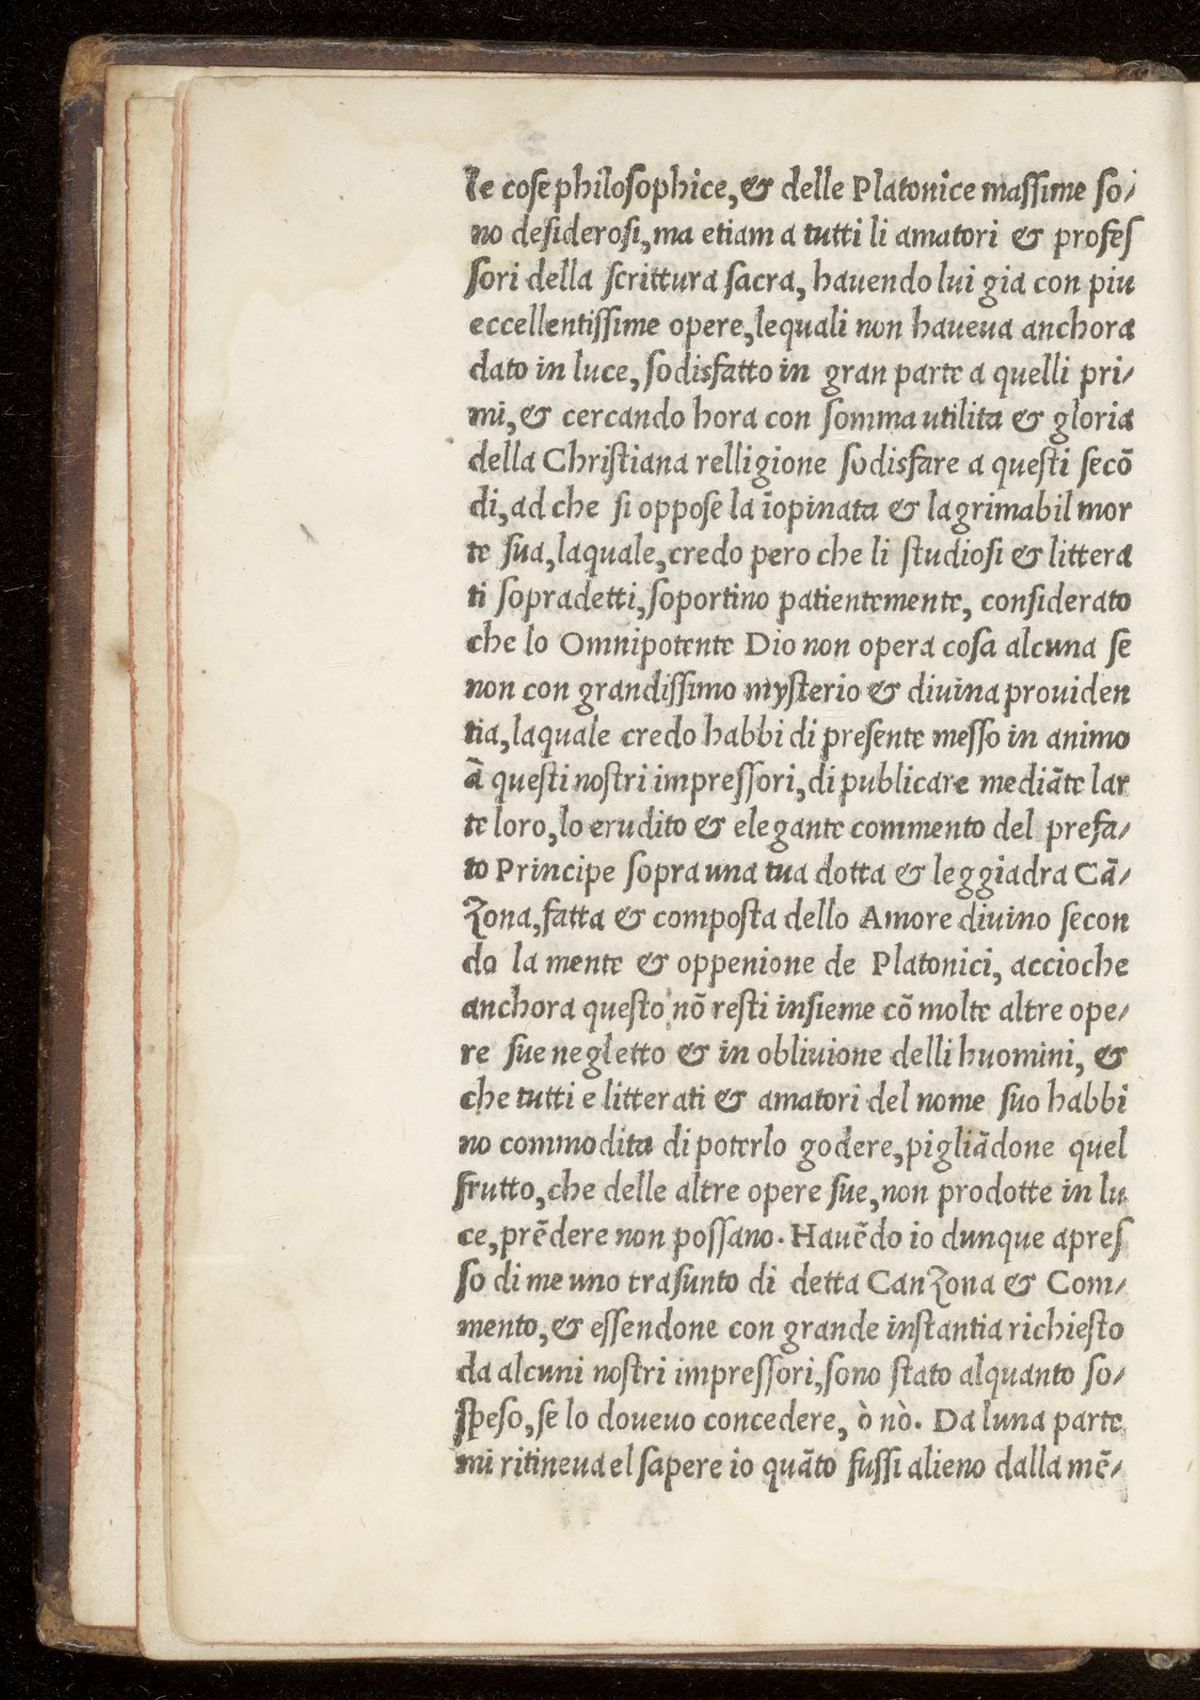 le cose philosophice, & delle Platonice massime so/
no desiderosi, ma etiam a tutti li amatori & profes
sori della scrittura sacra, hauendo lui gia con piu
eccellentissime opere, lequali non haueua anchora
dato in luce, sodisfatto in gran parte a quelli pri/
mi, & cercando hora con somma utilita & gloria
della Christiana relligione sodisfare a questi secõ
di, ad che si oppose la ĩopinata & lagrimabil mor
te sua, laquale, credo pero che li studiosi & littera
ti sopradetti, soportino patientemente, considerato
che lo Omnipotente Dio non opera cosa alcuna se
non con grandissimo mysterio & diuina prouiden
tia, laquale credo habbi di presente messo in animo
ã questi nostri impressori, di publicare mediãte lar
te loro, lo erudito & elegante commento del prefa/
to Principe sopra una tua dotta & leggiadra Cã/
zona, fatta & composta dello Amore diuino secon
do la mente & oppenione de Platonici, accioche
anchora questo nõ resti insieme cõ molte altre ope/
re sue negletto & in obliuione delli huomini, &
che tutti e litterati & amatori del nome suo habbi
no commodita di poterlo godere, pigliãdone quel
frutto, che delle altre opere sue, non prodotte in lu
ce, prẽdere non possano. Hauẽdo io dunque apres
so di me uno trasunto di detta Canzona & Com/
mento, & essendone con grande instantia richiesto
da alcuni nostri impressori, sono stato alquanto so/
speso, se lo doueuo concedere, ò nò. Da luna parte
mi ritineua el sapere io quãto fussi alieno dalla mẽ/